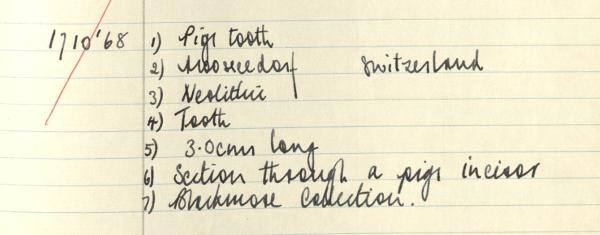 1710'68 1) Pigs tooth
2) Moosseedorf Switzerland
3) Neolithic
4) Tooth
5) 3.0cms long
6) Section through a pigs incisor
7) Blackmore Collection.